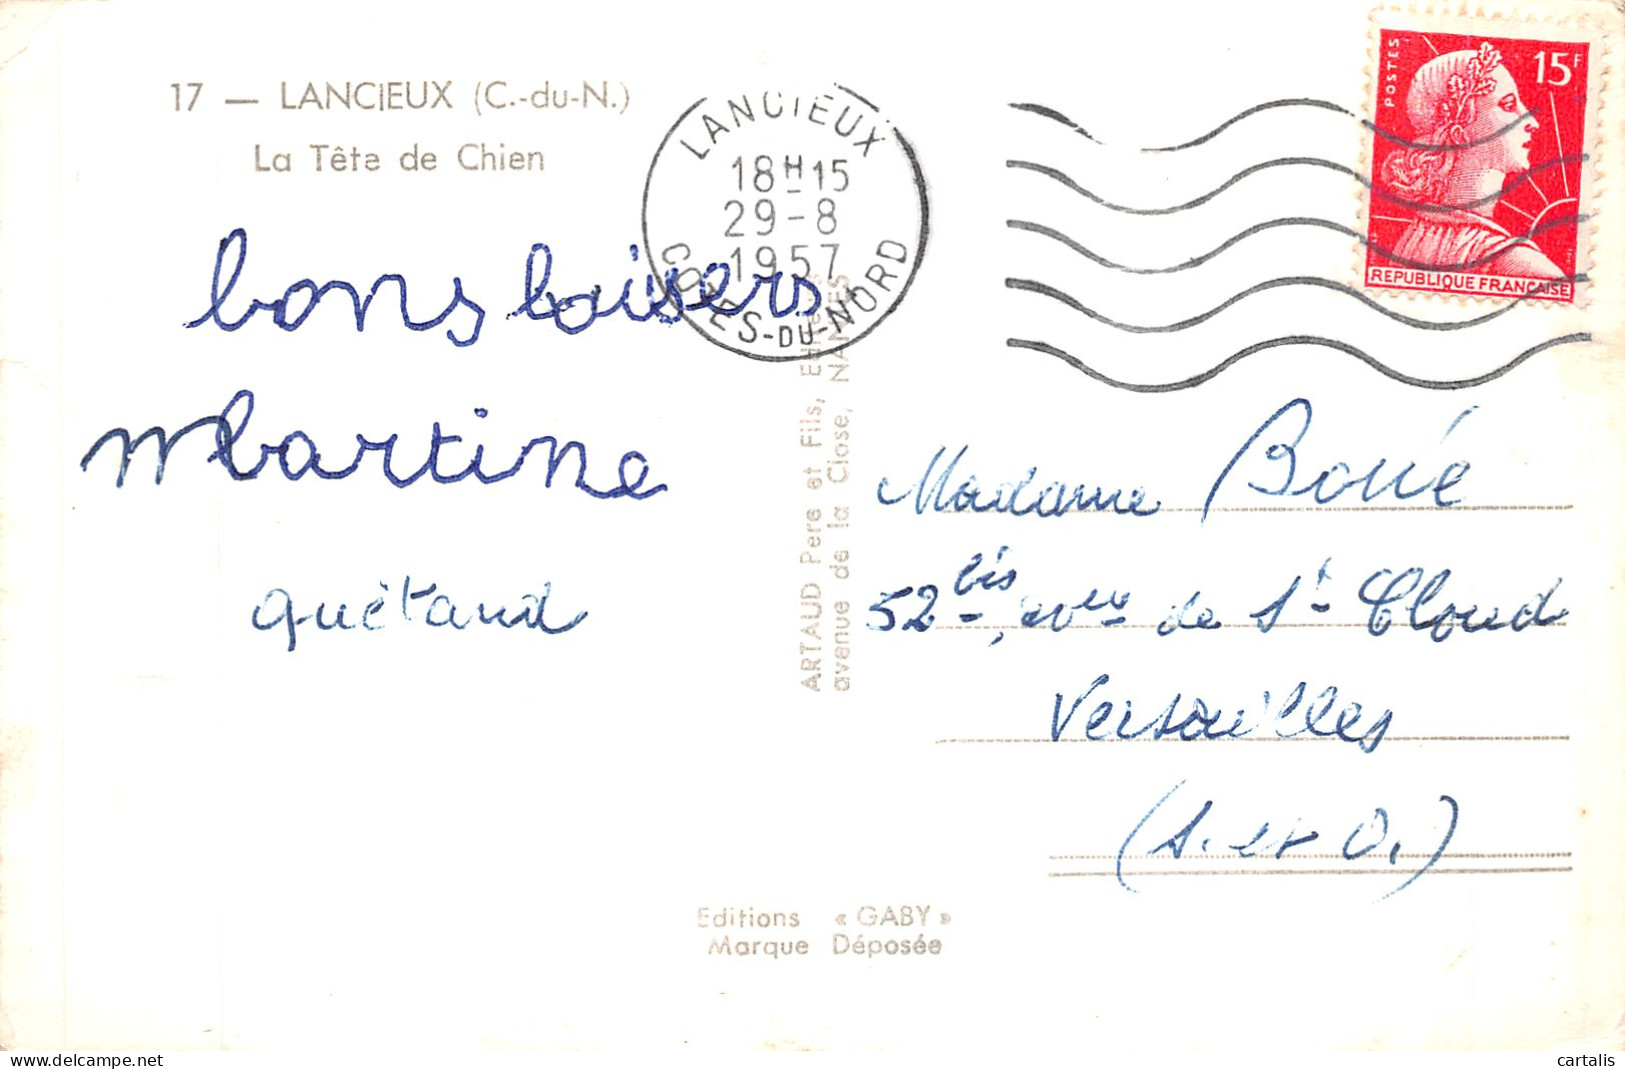 17 — LANCIEUX (C.-du-N.)
La Tête de Chien
bons baisers
Martine
quétand
LANCIEUX
18H15
29-8
1957
COTES-DU-NORD
POSTES
15F
REPUBLIQUE FRANÇAISE
ARTAUD Pere et Fils, Editeurs
avenue de la Close, NANTES
Madame Boué
52 bis, avenue de St Cloud
Versailles
(S. et O.)
Editions « GABY »
Marque Déposée
www.delcampe.net
cartalis